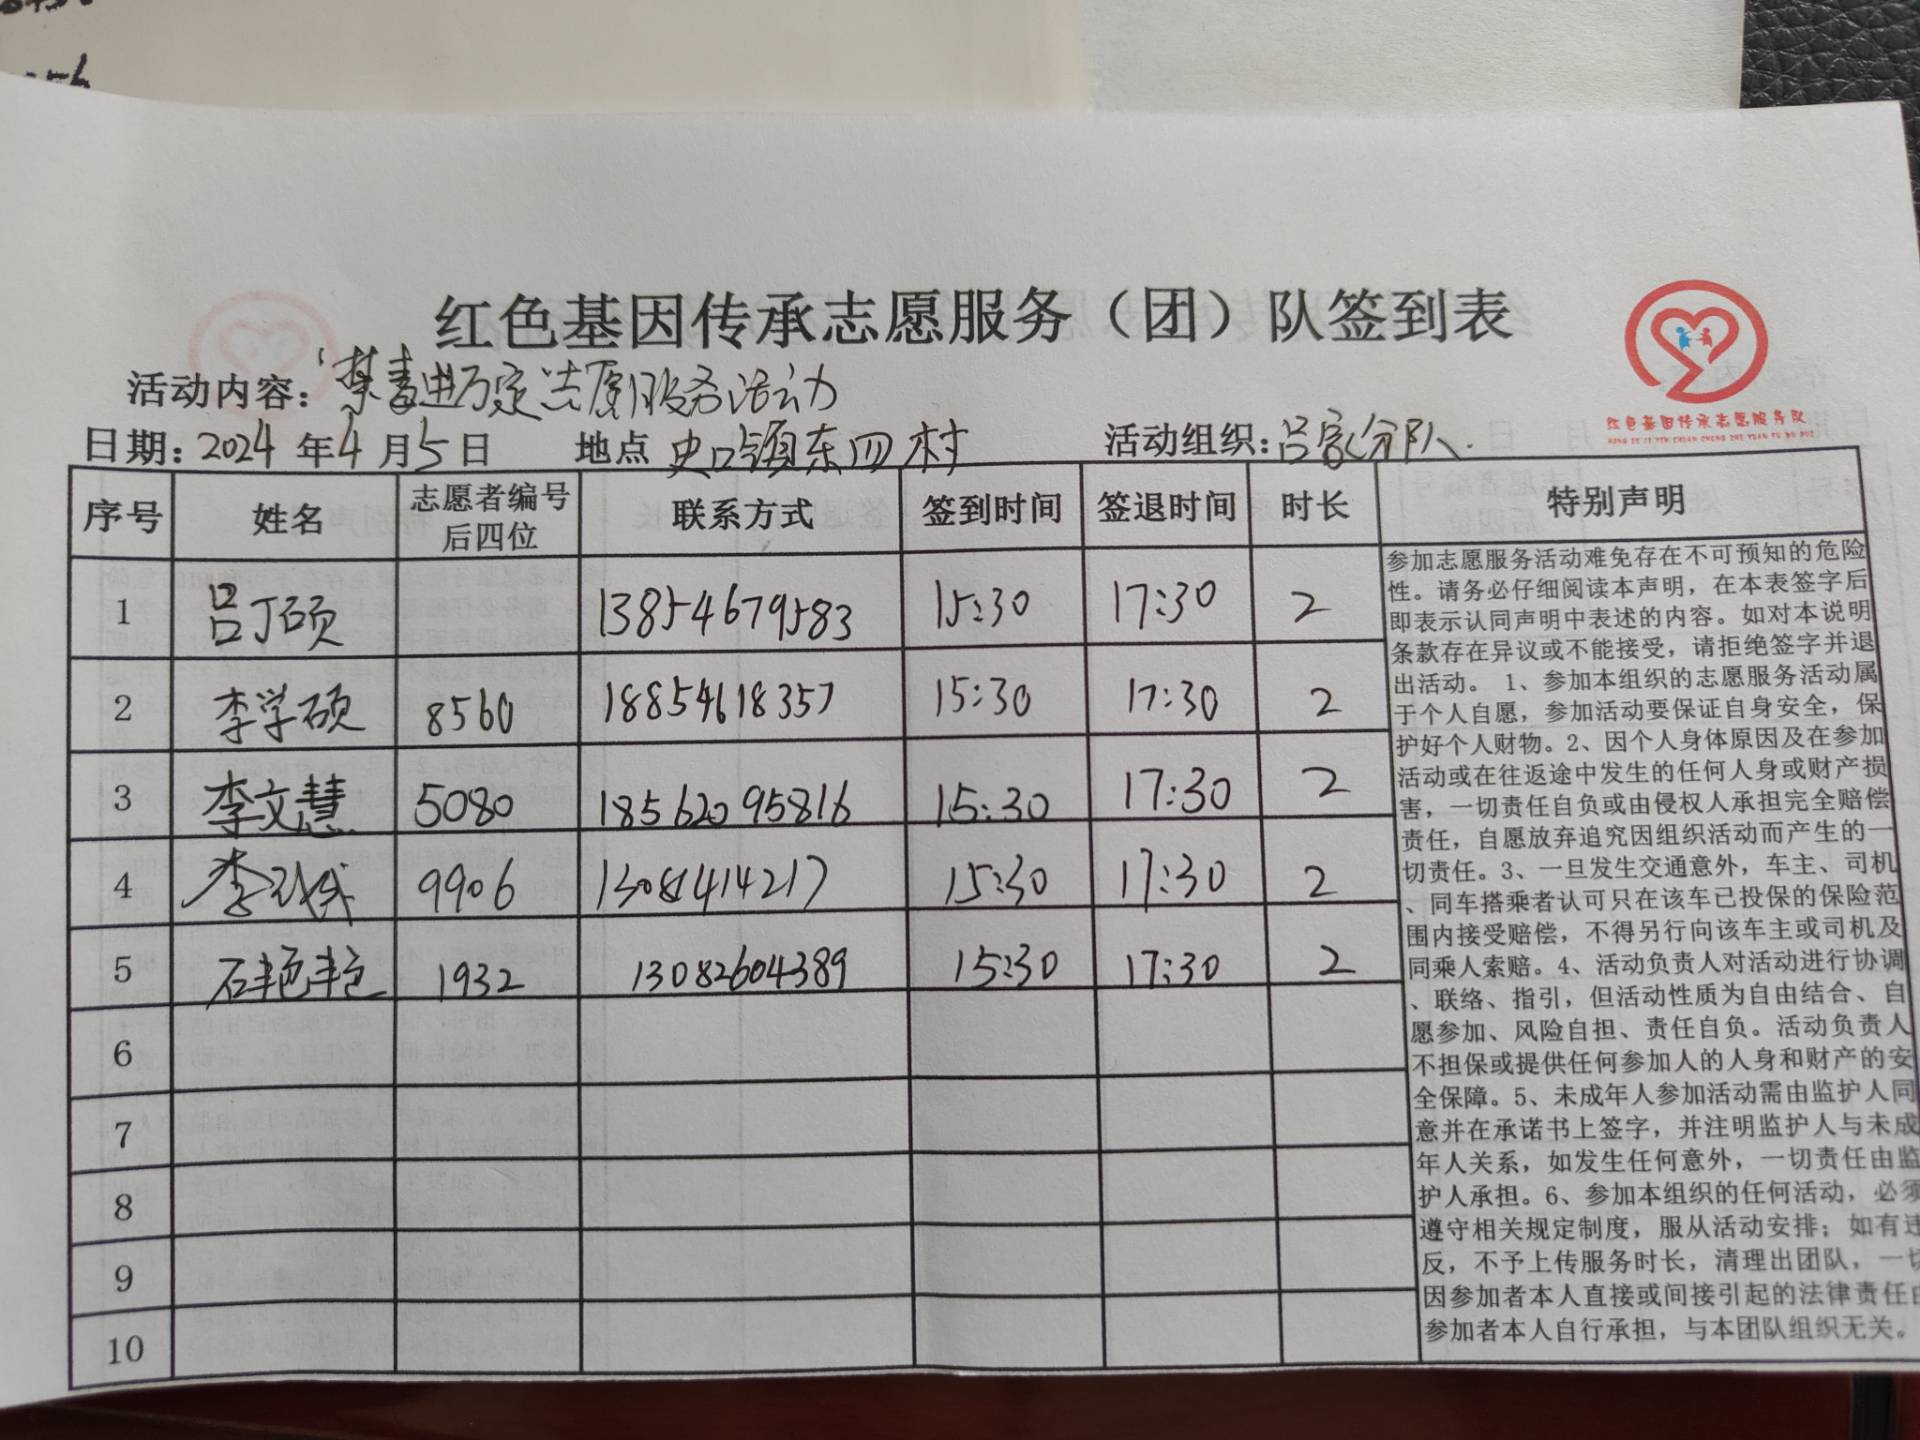 红色基因传承志愿服务（团）队签到表
活动内容：禁毒进万家志愿服务活动
日期：2024年4月5日 地点 史口镇东四村 活动组织：吕家分队.
红色基因传承志愿服务队
HONG SE JI YIN CHUAN CHENG ZHI YUAN FU WU DUI
序号 姓名 志愿者编号后四位 联系方式 签到时间 签退时间 时长 特别声明
1 吕丁硕 13854679583 15:30 17:30 2
2 李学硕 8560 18854618357 15:30 17:30 2
3 李文慧 5080 18562095816 15:30 17:30 2
4 李 9906 13081414217 15:30 17:30 2
5 石艳艳 1932 13082604389 15:30 17:30 2
6
7
8
9
10
参加志愿服务活动难免存在不可预知的危险
性。请务必仔细阅读本声明，在本表签字后
即表示认同声明中表述的内容。如对本说明
条款存在异议或不能接受，请拒绝签字并退
出活动。 1、参加本组织的志愿服务活动属
于个人自愿，参加活动要保证自身安全，保
护好个人财物。2、因个人身体原因及在参加
活动或在往返途中发生的任何人身或财产损
害，一切责任自负或由侵权人承担完全赔偿
责任，自愿放弃追究因组织活动而产生的一
切责任。3、一旦发生交通意外，车主、司机
、同车搭乘者认可只在该车已投保的保险范
围内接受赔偿，不得另行向该车主或司机及
同乘人索赔。4、活动负责人对活动进行协调
、联络、指引，但活动性质为自由结合、自
愿参加、风险自担、责任自负。活动负责人
不担保或提供任何参加人的人身和财产的安
全保障。5、未成年人参加活动需由监护人同
意并在承诺书上签字，并注明监护人与未成
年人关系，如发生任何意外，一切责任由监
护人承担。6、参加本组织的任何活动，必须
遵守相关规定制度，服从活动安排；如有违
反，不予上传服务时长，清理出团队，一切
因参加者本人直接或间接引起的法律责任由
参加者本人自行承担，与本团队组织无关。